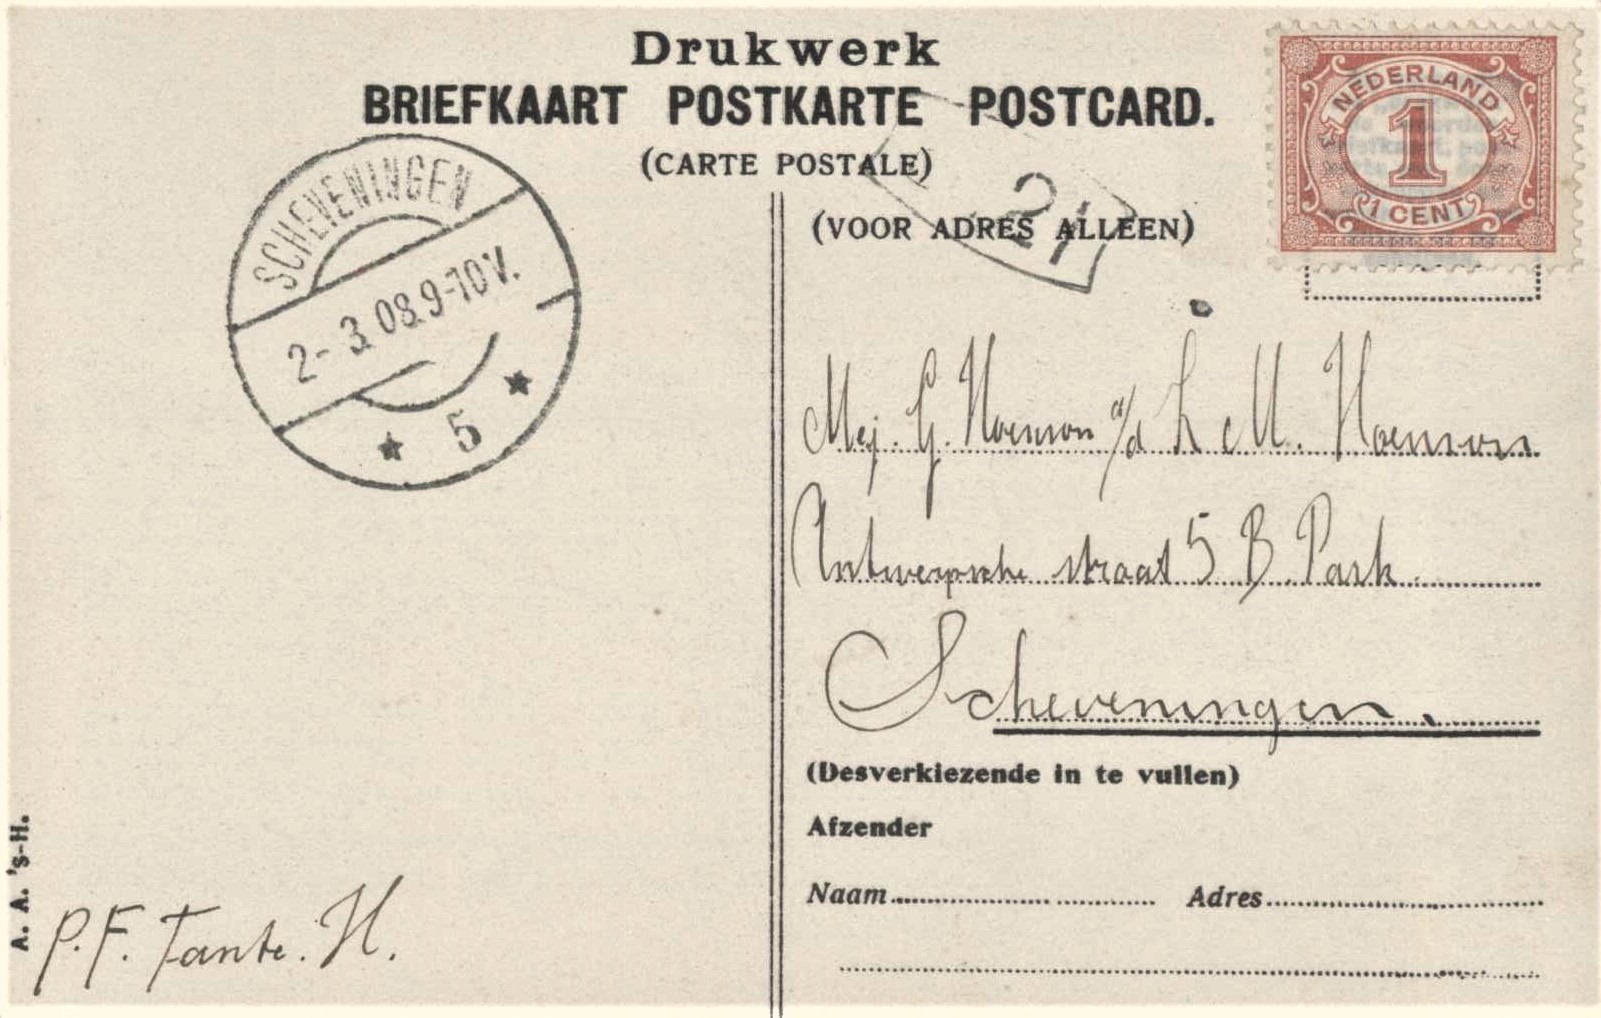 Drukwerk
BRIEFKAART POSTKARTE POSTCARD.
(CARTE POSTALE)
(VOOR ADRES ALLEEN)
NEDERLAND
1
1 CENT
SCHEVENINGEN
2- 3.08.9-10V.
5
21
Mej. G. Hoenson a/d M. Hoenson
Antwerpsche straat 5 B. Park.
Scheveningen.
(Desverkiezende in te vullen)
Afzender
Naam Adres
A. A. 's-H.
P.F. Tante. H.